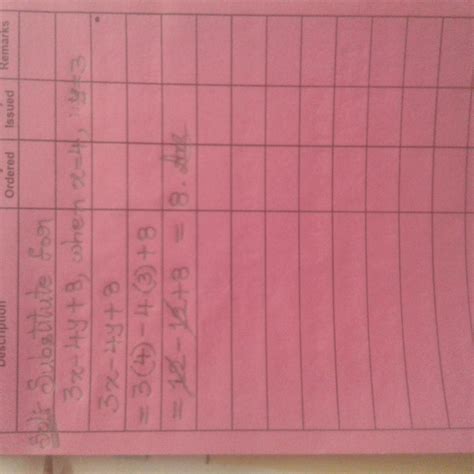 Description Ordered Issued Remarks
Sol: Substitute for
3x-4y+8, when x=4, y=3
3x-4y+8
=3(4)-4(3)+8
=12-12+8 = 8. Ans